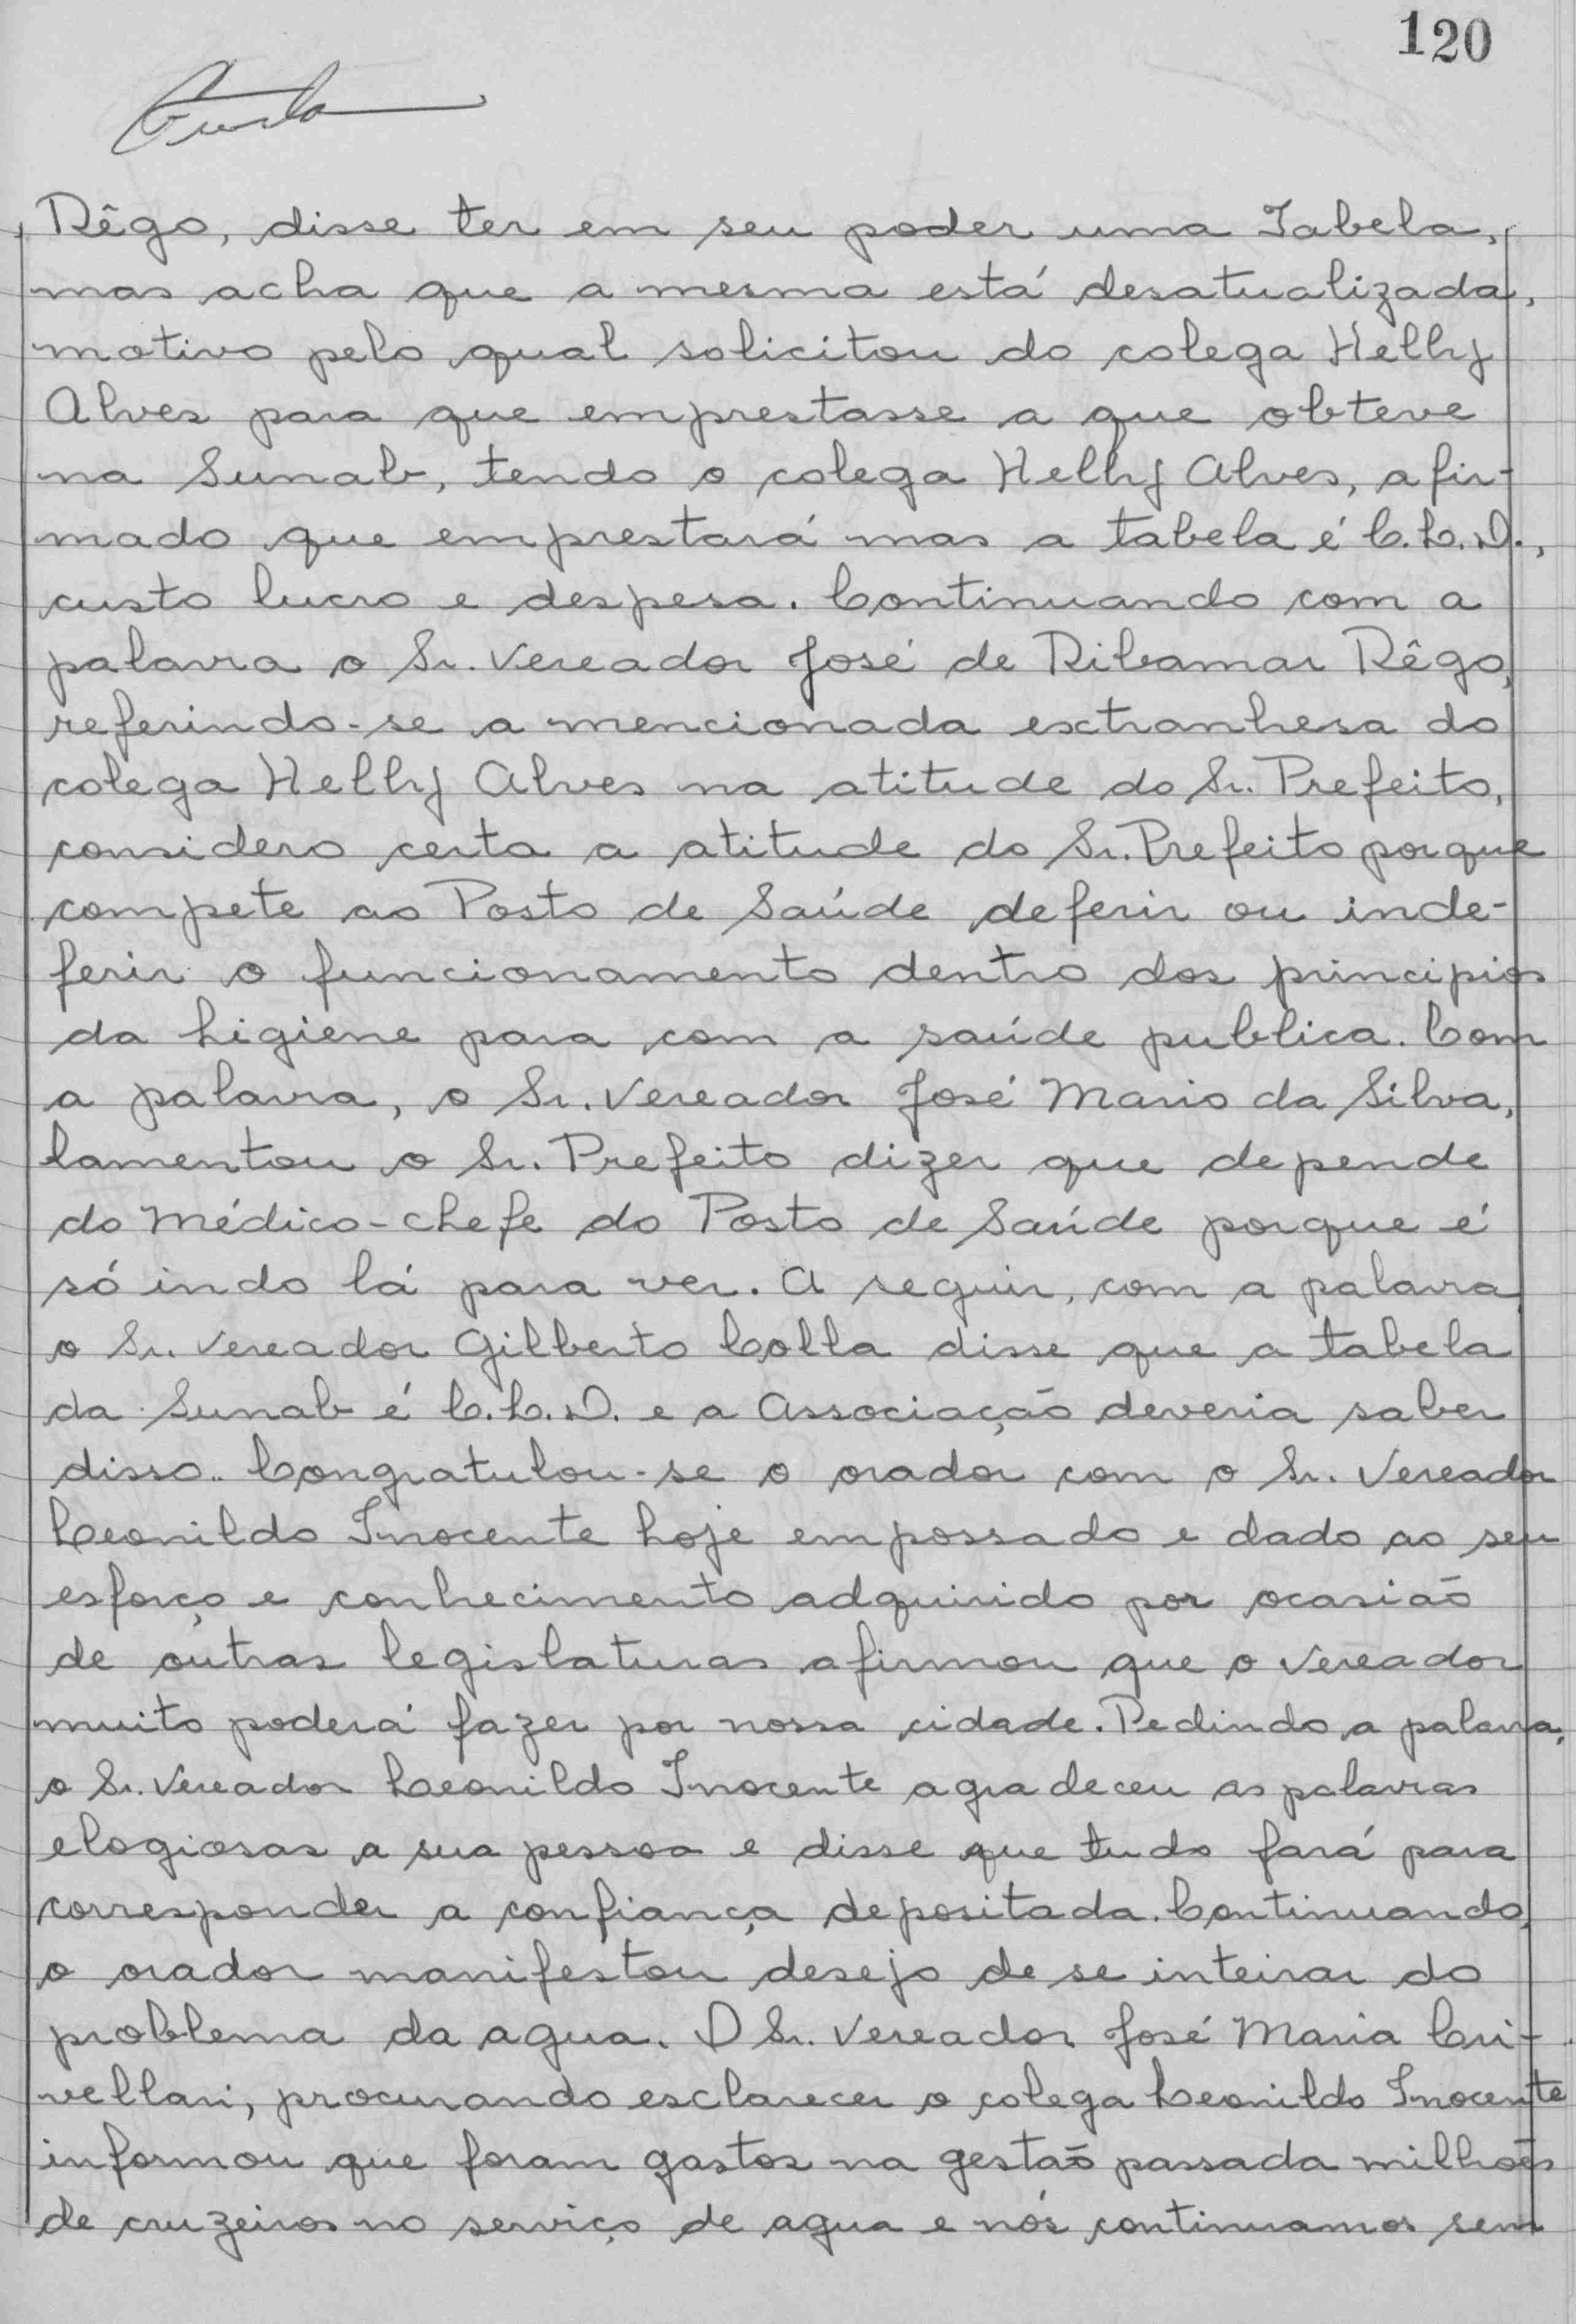 120
Rêgo, disse ter em seu poder uma Tabela,
mas acha que a mesma está desatualizada,
motivo pelo qual solicitou do colega Helly
Alves para que emprestasse a que obteve
na Sunab, tendo o colega Helly Alves, afir-
mado que emprestará mas a tabela é C.L.D.,
custo lucro e despesa. Continuando com a
palavra o Sr. Vereador José de Ribamar Rêgo,
referindo-se a mencionada extranhesa do
colega Helly Alves na atitude do Sr. Prefeito,
considero certa a atitude do Sr. Prefeito porque
compete ao Posto de Saúde deferir ou inde-
ferir o funcionamento dentro dos principios
da higiene para com a saúde publica. Com
a palavra, o Sr. Vereador José Mario da Silva,
lamentou o Sr. Prefeito dizer que depende
do Médico-chefe do Posto de Saúde porque é
só indo lá para ver. A seguir, com a palavra
o Sr. Vereador Gilberto Colla disse que a tabela
da Sunab é C.L.D. e a Associação deveria saber
disso.. Congratulou-se o orador com o Sr. Vereador
Leonildo Inocente hoje empossado e dado ao seu
esforço e conhecimento adquirido por ocasião
de outras legislaturas afirmou que o Vereador
muito poderá fazer por nossa cidade. Pedindo a palavra,
o Sr. Vereador Leonildo Inocente agradeceu as palavras
elogiosas a sua pessoa e disse que tudo fará para
corresponder a confiança depositada. Continuando,
o orador manifestou desejo de se inteirar do
problema da agua. O Sr. Vereador José Maria Cri-
vellari, procurando esclarecer o colega Leonildo Inocente
informou que foram gastos na gestão passada milhões
de cruzeiros no serviço de agua e nós continuamos sem